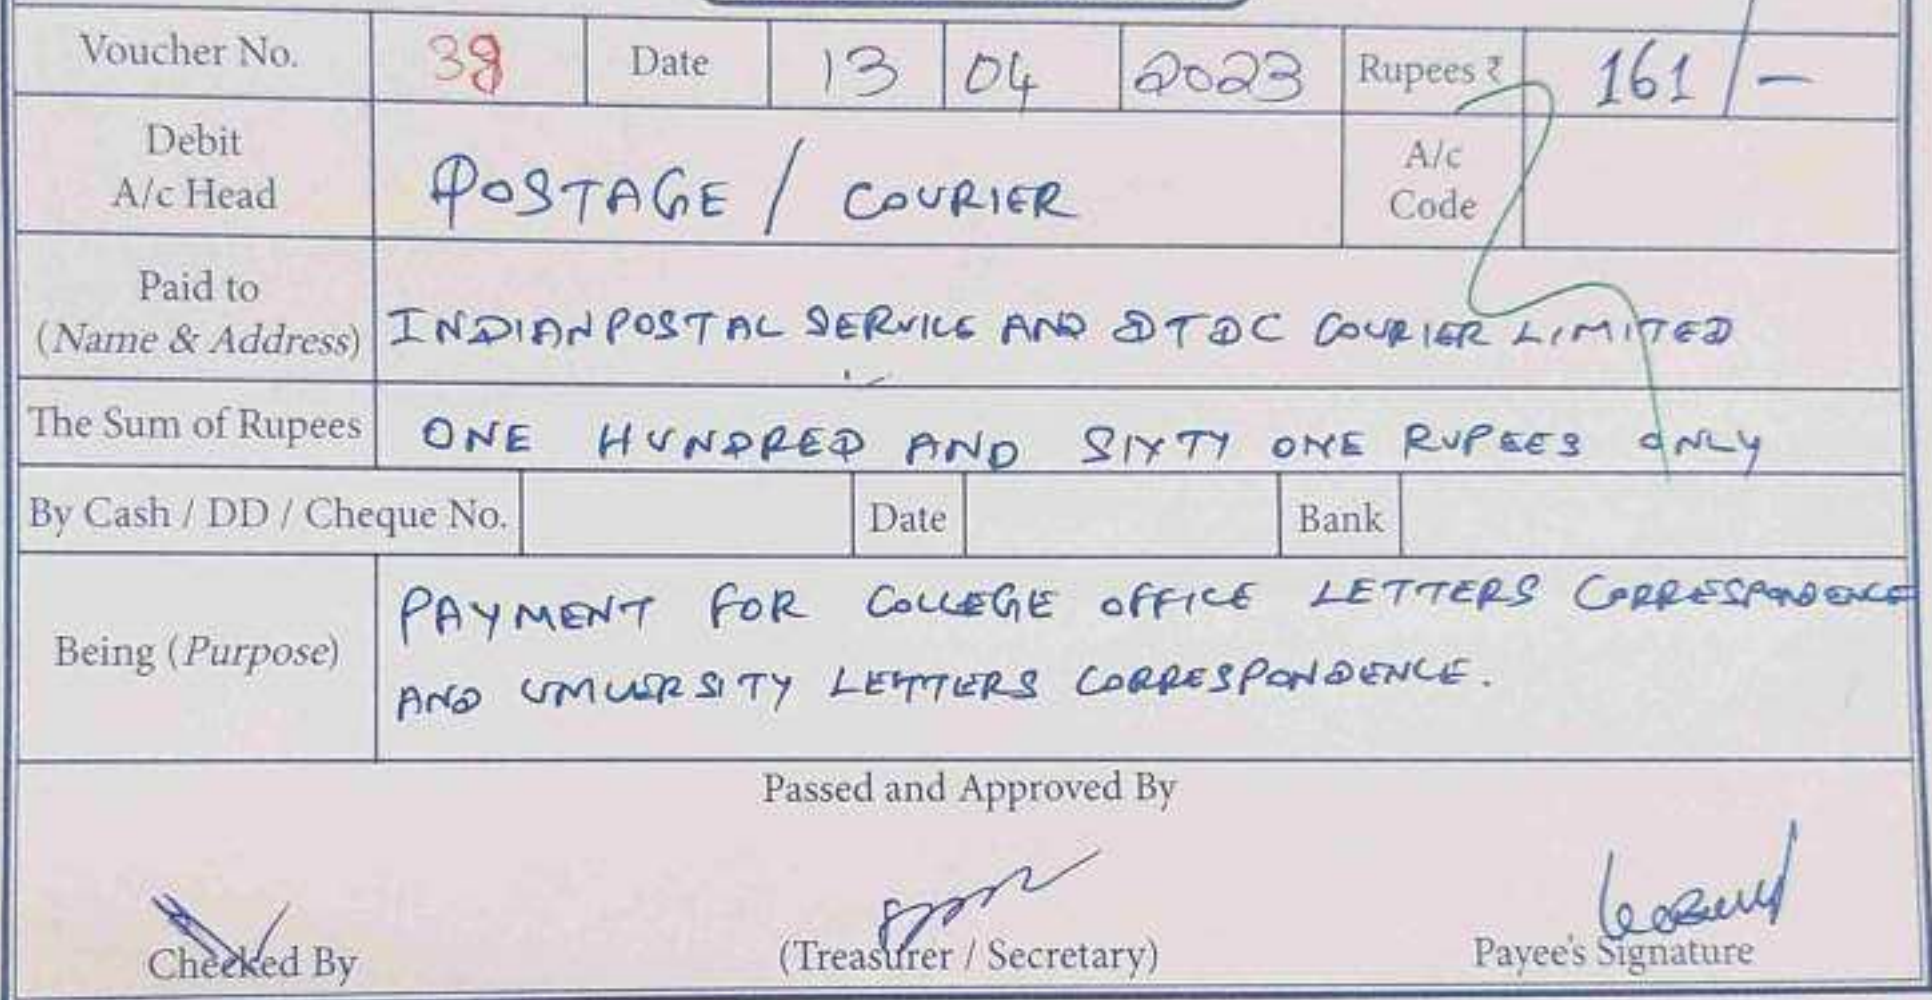 Voucher No. 38 Date 13 04 2023 Rupees ₹ 161/-
Debit A/c Head POSTAGE / COURIER A/c Code
Paid to (Name & Address) INDIAN POSTAL SERVICE AND DTDC COURIER LIMITED
The Sum of Rupees ONE HUNDRED AND SIXTY ONE RUPEES ONLY
By Cash / DD / Cheque No. Date Bank
Being (Purpose) PAYMENT FOR COLLEGE OFFICE LETTERS CORRESPONDENCE
AND UNIVERSITY LETTERS CORRESPONDENCE.
Passed and Approved By
Checked By (Treasurer / Secretary) Payee's Signature